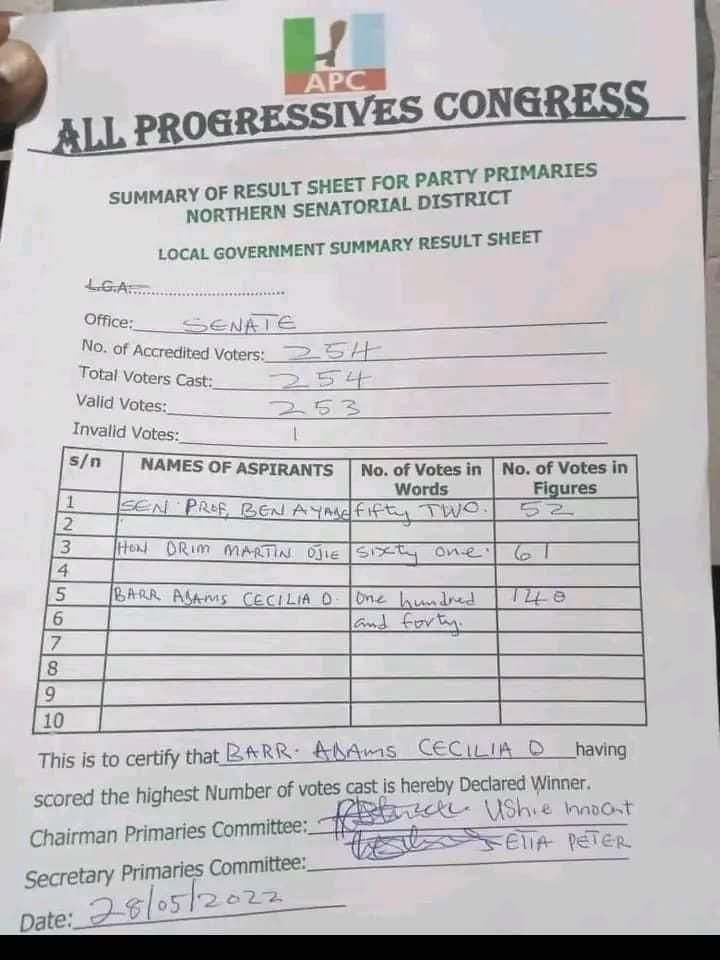 APC
ALL PROGRESSIVES CONGRESS
SUMMARY OF RESULT SHEET FOR PARTY PRIMARIES
NORTHERN SENATORIAL DISTRICT
LOCAL GOVERNMENT SUMMARY RESULT SHEET
L.G.A:
Office: SENATE
No. of Accredited Voters: 254
Total Voters Cast: 254
Valid Votes: 253
Invalid Votes: 1
s/n NAMES OF ASPIRANTS No. of Votes in Words No. of Votes in Figures
1 SEN PROF, BEN AYADE fifty TWO. 52
2
3 HON ORIM MARTIN OJIE sixty one. 61
4
5 BARR ADAMS CECILIA O. One hundred 140
6 and forty.
7
8
9
10
This is to certify that BARR. ADAMS CECILIA O having
scored the highest Number of votes cast is hereby Declared Winner.
Chairman Primaries Committee: UShie Innocent
Secretary Primaries Committee: ETIA PETER
Date: 28/05/2022